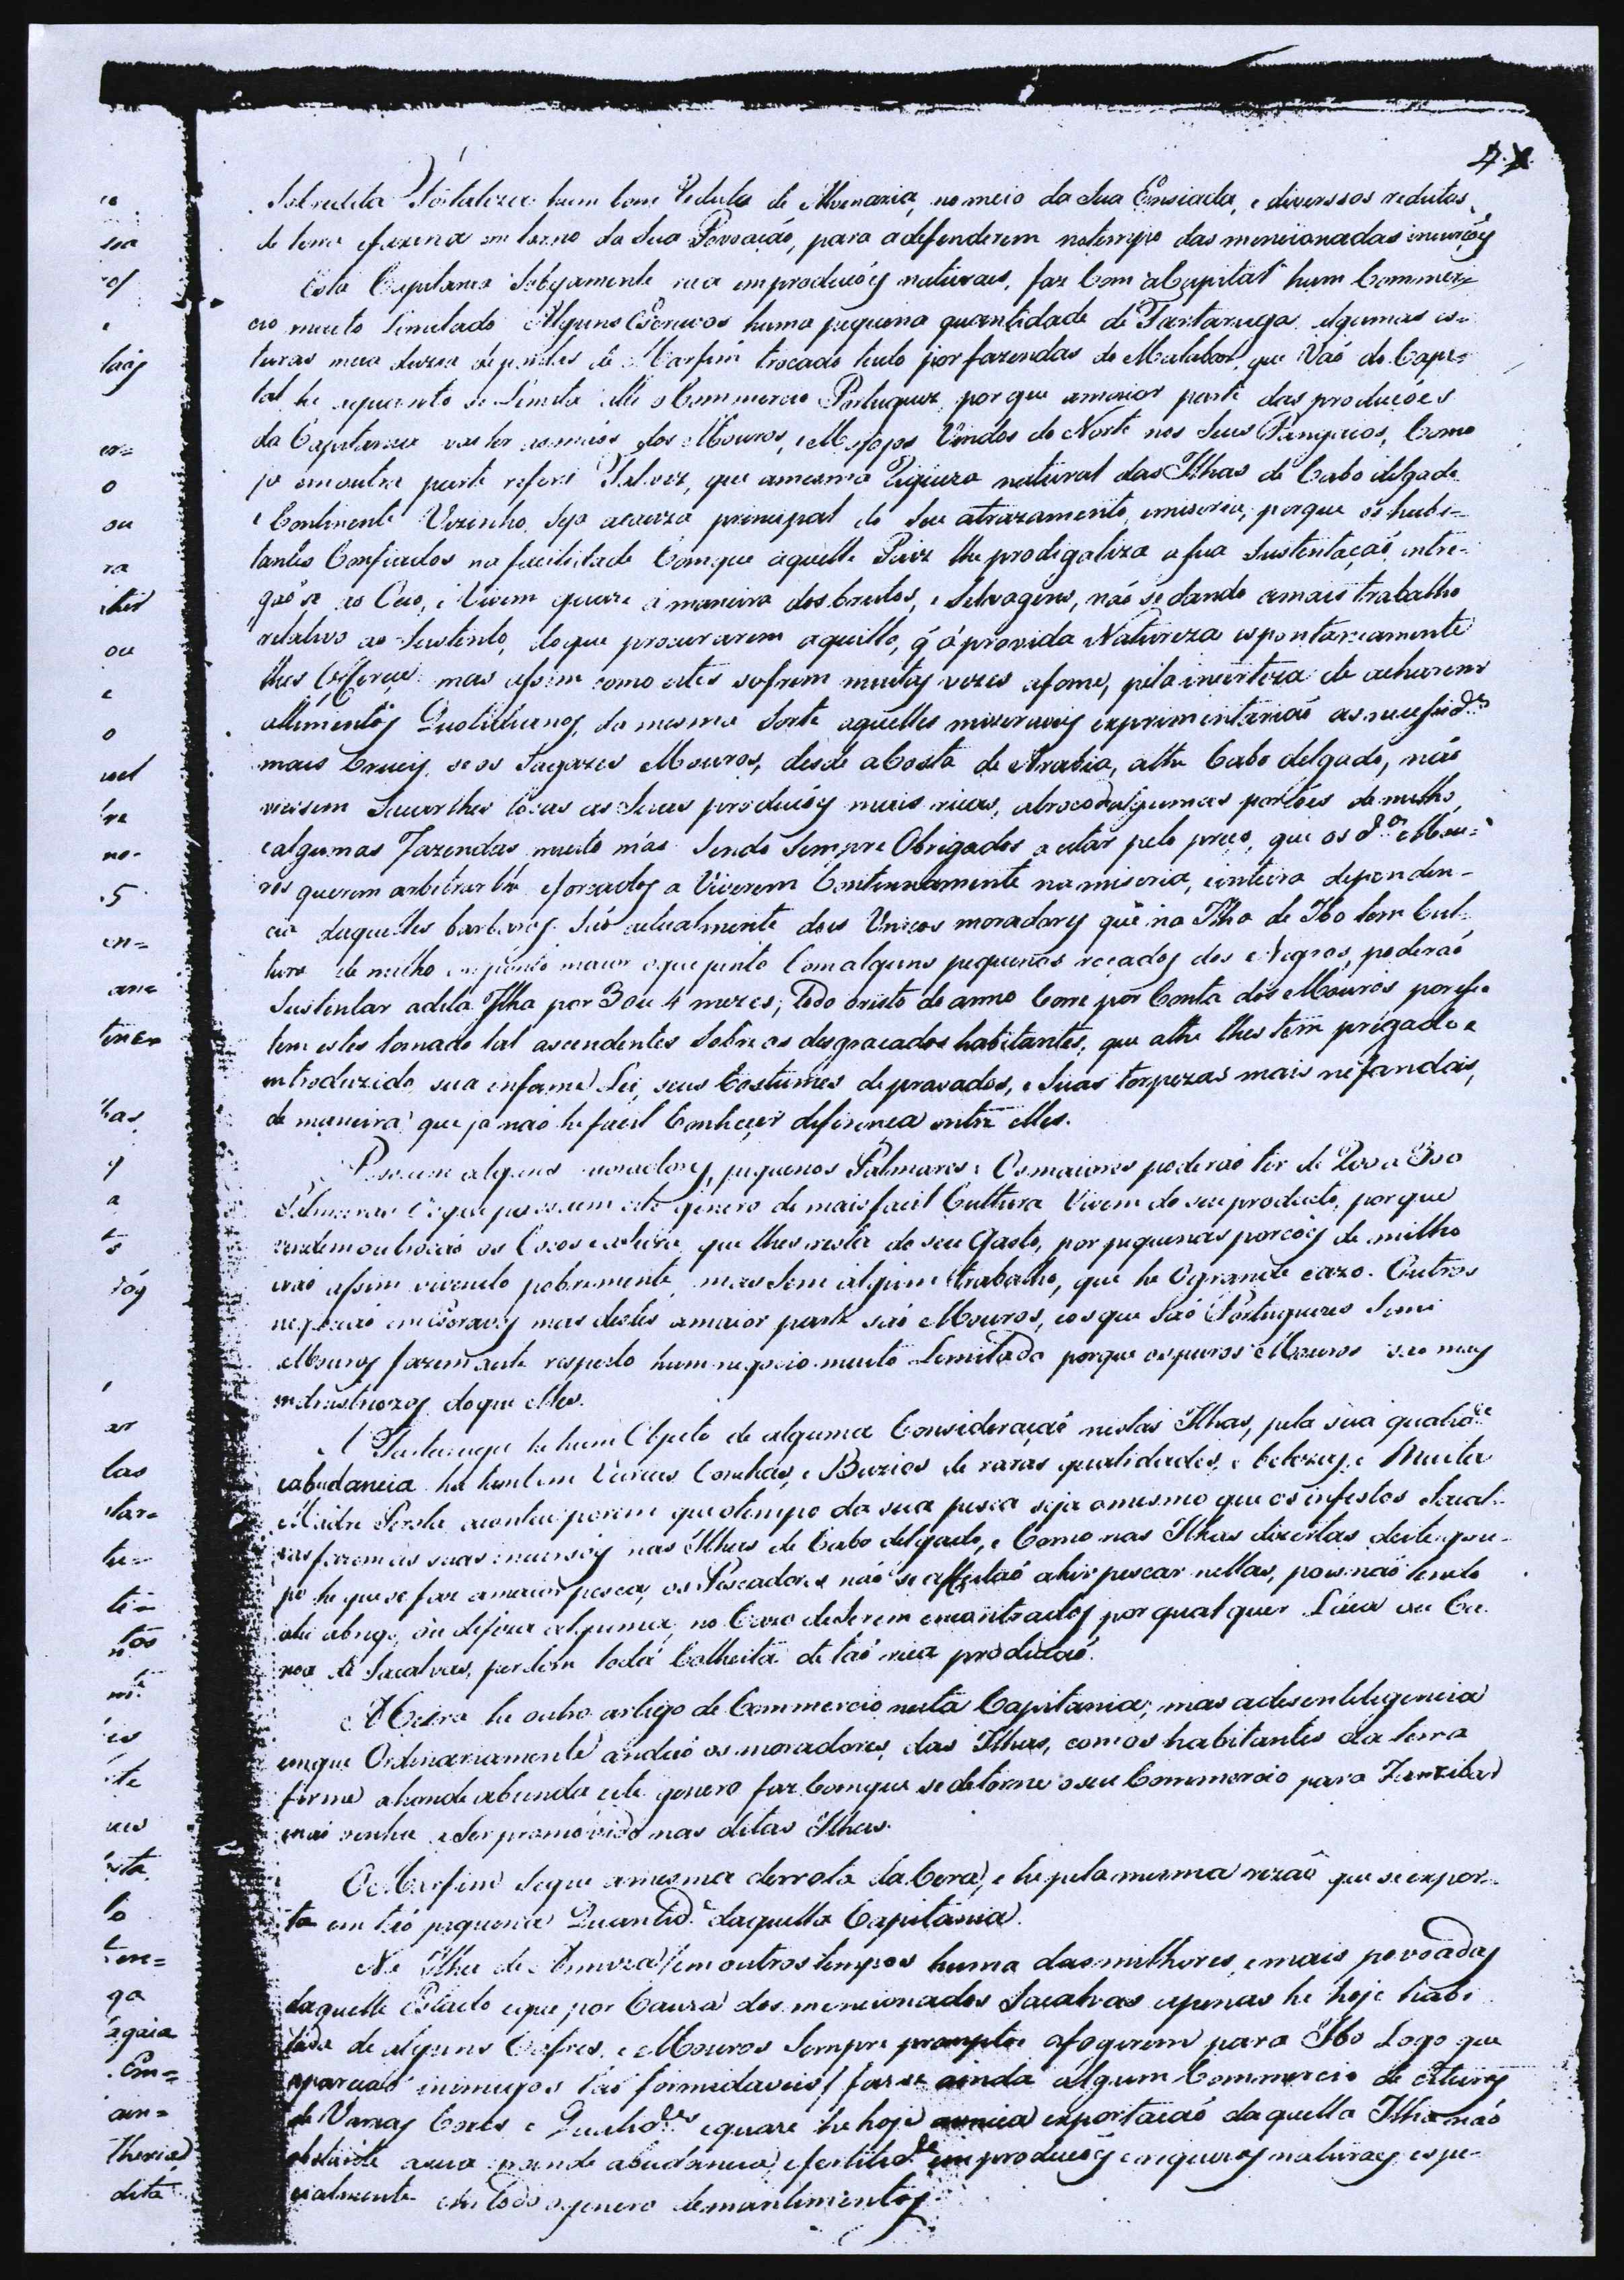 4.
Sobredita Fortaleza hum bom Reduto de Alvenaria, no meio da Sua Enseada, e diverssos redutos
de terra e faxina em torno da Sua Povoação, para a defenderem no tempo das mencionadas incursoẽs
Esta Capitania Sobejamente rica em produçoẽs naturais, faz Com a Capital hum Commer-
cio muito Limitado Alguns Escravos huma pequena quantidade de Tartaruga algumas es-
teiras meia duzia de pontas de Marfim trocado tudo por fazendas do Malabar, que Vaõ da Capi-
tal he a quanto se Limita alli o Commercio Portuguez, por que a maior parte das produçoẽs
da Capitania vai ter as maõs dos Mouros, e Mujojos Vindos do Norte nos Seus Pangaios, Como
ja em outra parte referi Talvez, que a mesma Riqueza natural das Ilhas de Cabo delgado
e Continente Vezinho Seja a cauza principal do Seu atrazamento, e miseria, porque os habi-
tantes Confiados na facilidade Com que aquelle Paiz lhe prodigaliza a sua Sustentaçaõ entre-
gaõ se ao Ocio, e Vivem quaze á maneira dos brutos, e Selvagens, naõ se dando a mais trabalho
relativo ao Sustento, do que procurarem aquillo, q̃ a provida Natureza espontaneamente
lhes Offerece mas assim como estes sofrem muitas vezes a fome, pela incerteza de acharem
allimentos Quotidianos, da mesma Sorte aquelles miseraveis exprimentariaõ as necessid.es
mais Crueis, se os Sagazes Mouros, desde a Costa de Arabia, athe Cabo delgado, naõ
viessem Sacar lhes todas as Suas produçoẽs mais ricas, a troco de algumas porçoẽs de milho,
e algumas Fazendas muito más Sendo Sempre Obrigados a estar pelo preço, que os d.os Mou-
ros querem arbitrar lhe e forçados a Viverem Continuamente na miseria, e inteira dependen-
cia daquelles barbaros. Saõ actualmente dois Unicos moradores que na Ilha de Ibo tem Cul-
tura de milho em ponto maior o que junto Com alguns pequenos roçados dos Negros, poderaõ
Sustentar a dita Ilha por 3 ou 4 mezes; todo o resto do anno Corre por Conta dos Mouros por isso
tem estes tomado tal ascendentes Sobre os desgraçados habitantes, que athe lhes tem prégado e
introduzido sua infame Lei, seus Costumes depravados, e Suas torpezas mais nefandas,
de maneira que ja naõ he facil Conhecer diferença entre elles.
Possuem alguns moradores, pequenos Palmares: Os maiores poderaõ ter de 200 a 300
Palmeiras Os que possuem este genero de mais facil Cultura Vivem do seu producto, porque
vendem ou trocaõ os Cocos que lhes resta do seu Gasto, por pequenas porçoẽs de milho
e vaõ assim vivendo pobremente, mas Sem algum trabalho, que he O grande cazo. Outros
negoceaõ em Escravos mas destes a maior parte saõ Mouros, e os que Saõ Portuguezes Semi
Mouros fazem a este respeito hum negocio muito Limitado porque os puros Mouros saõ mais
industriozos do que elles.
A Tartaruga he hum Objecto de alguma Consideraçaõ nestas Ilhas, pela sua qualid.e
e abundancia ha tambem Varias Conchas, e Buzios de raras qualidades, e belezas, e Muita
Madre Perola acontece porem que o tempo da sua pesca seja o mesmo que os infestos Sacal-
vas fazem as suas incursoẽs nas Ilhas de Cabo delgado, e Como nas Ilhas dezertas deste grou-
po he que se faz a maior pesca, os Pescadores naõ se affoitaõ a hir pescar nellas, pois naõ tendo
ahi abrigo, ou defeza alguma, no Cazo de Serem encontrados por qual quer Laca ou Ca-
noa de Sacalvas, perdem toda Colheita de taõ rica produçaõ.
A Cera he outro artigo de Commercio nesta Capitania; mas a desentelegencia
em que Ordinariamente andaõ os moradores das Ilhas, com os habitantes da terra
firme a honde abunda este genero faz Com que se detorne o seu Commercio para Zanzibar
e naõ venha a Ser promovido nas ditas Ilhas.
O Marfim Segue a mesma derrota da Cera, e he pela mesma rezaõ que se expor-
ta em taõ pequena Quantid.e daquella Capitania.
Na Ilha de Amiza (em outros tempos huma das milhores, e mais povoadas
daquelle Estado e que por Cauza dos mencionados Sacalvas apenas he hoje habi-
tada de alguns Cafres, e Mouros Sempre promptos a fogirem para Ibo Logo que
apareçaõ inimigos taõ formidaveis) faz se ainda algum Commercio de esteiras
de Varias Cores e Qualid.es e quaze he hoje a unica exportaçaõ daquella Ilha naõ
obstante a sua grande abundancia, e fertilid.e em produçoẽs e riquezas naturaes, espe-
cialmente em todo o genero de mantimentos